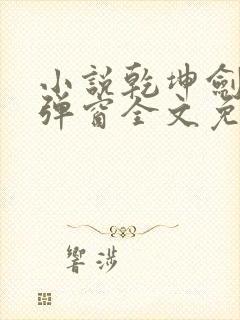 小說乾坤劍
彈窗全文免
響涉